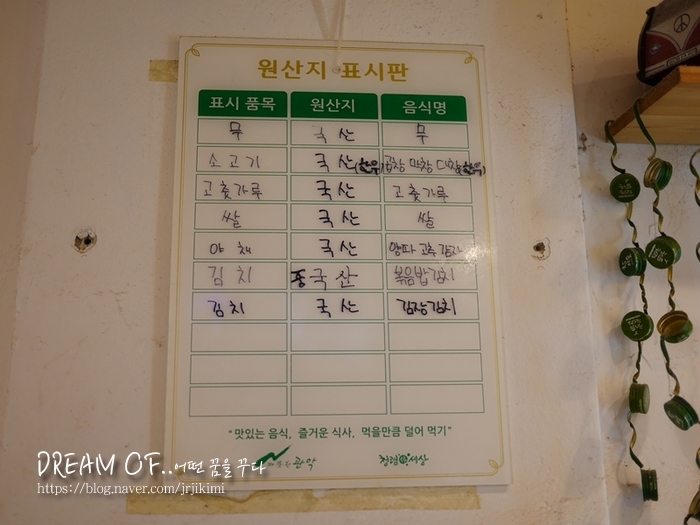 원산지 표시판
표시 품목 원산지 음식명
무 국산 무
소고기 국산(한우) 곱창 막창 대창(한우)
고춧가루 국산 고춧가루
쌀 국산 쌀
야채 국산 양파 고추 감자
김치 중국산 볶음밥김치
김치 국산 김장김치
"맛있는 음식, 즐거운 식사, 먹을만큼 덜어 먹기"
관악 청렴 세상
DREAM OF..어떤 꿈을 꾸다
https://blog.naver.com/jrjikimi